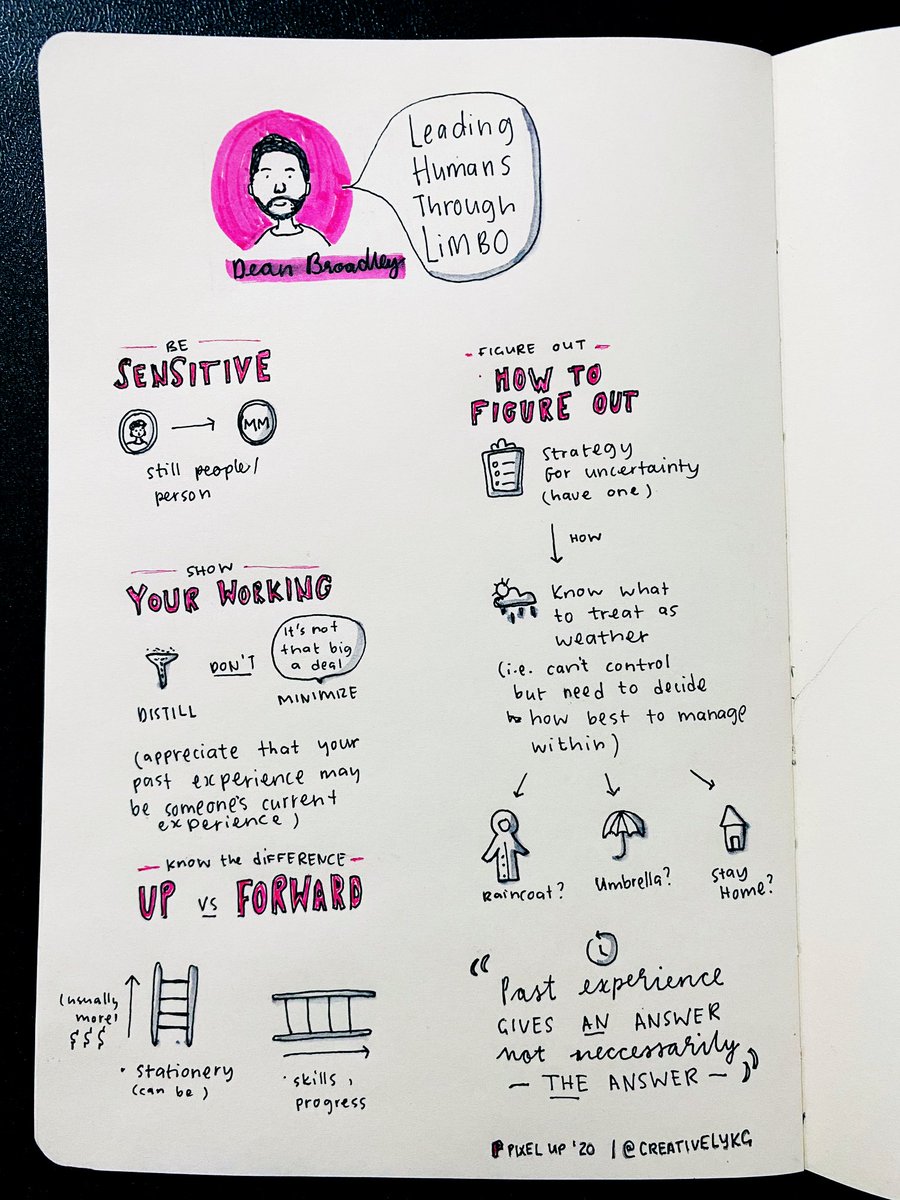 Leading
Humans
Through
LiMBO
Dean Broadley
BE
SENSITIVE
MM
still people/
person
SHOW
YOUR WORKING
DISTILL
DON'T
It's not
that big
a deal
MINIMIZE
(appreciate that your
past experience may
be someone's current
experience)
KNOW the diFFERENCE
UP vs FORWARD
(usually
more!
$$$
• stationery
(can be)
• skills,
progress
FIGURE OUT
HOW TO
FIGURE OUT
Strategy
for uncertainty
(have one)
HOW
Know what
to treat as
weather
(i.e. can't control
but need to decide
↳ how best to manage
within)
Raincoat?
Umbrella?
Stay
Home?
"Past experience
GIVES AN ANSWER
not neccessarily
— THE ANSWER —"
PIXEL UP '20 / @CREATIVELYKG